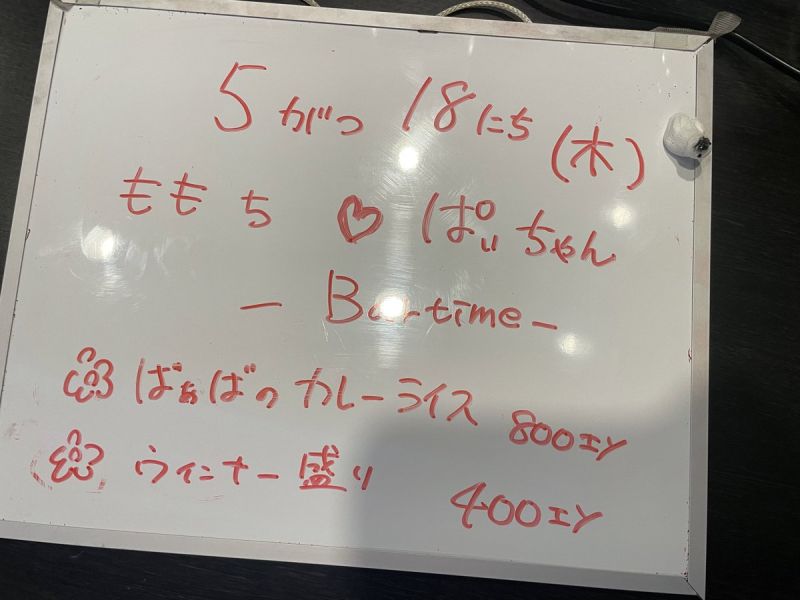 5がつ 18にち (木)
ももち ♡ ぱぃちゃん
— Bar time —
ばぁばのカレーライス 800エン
ウィンナー盛り 400エン